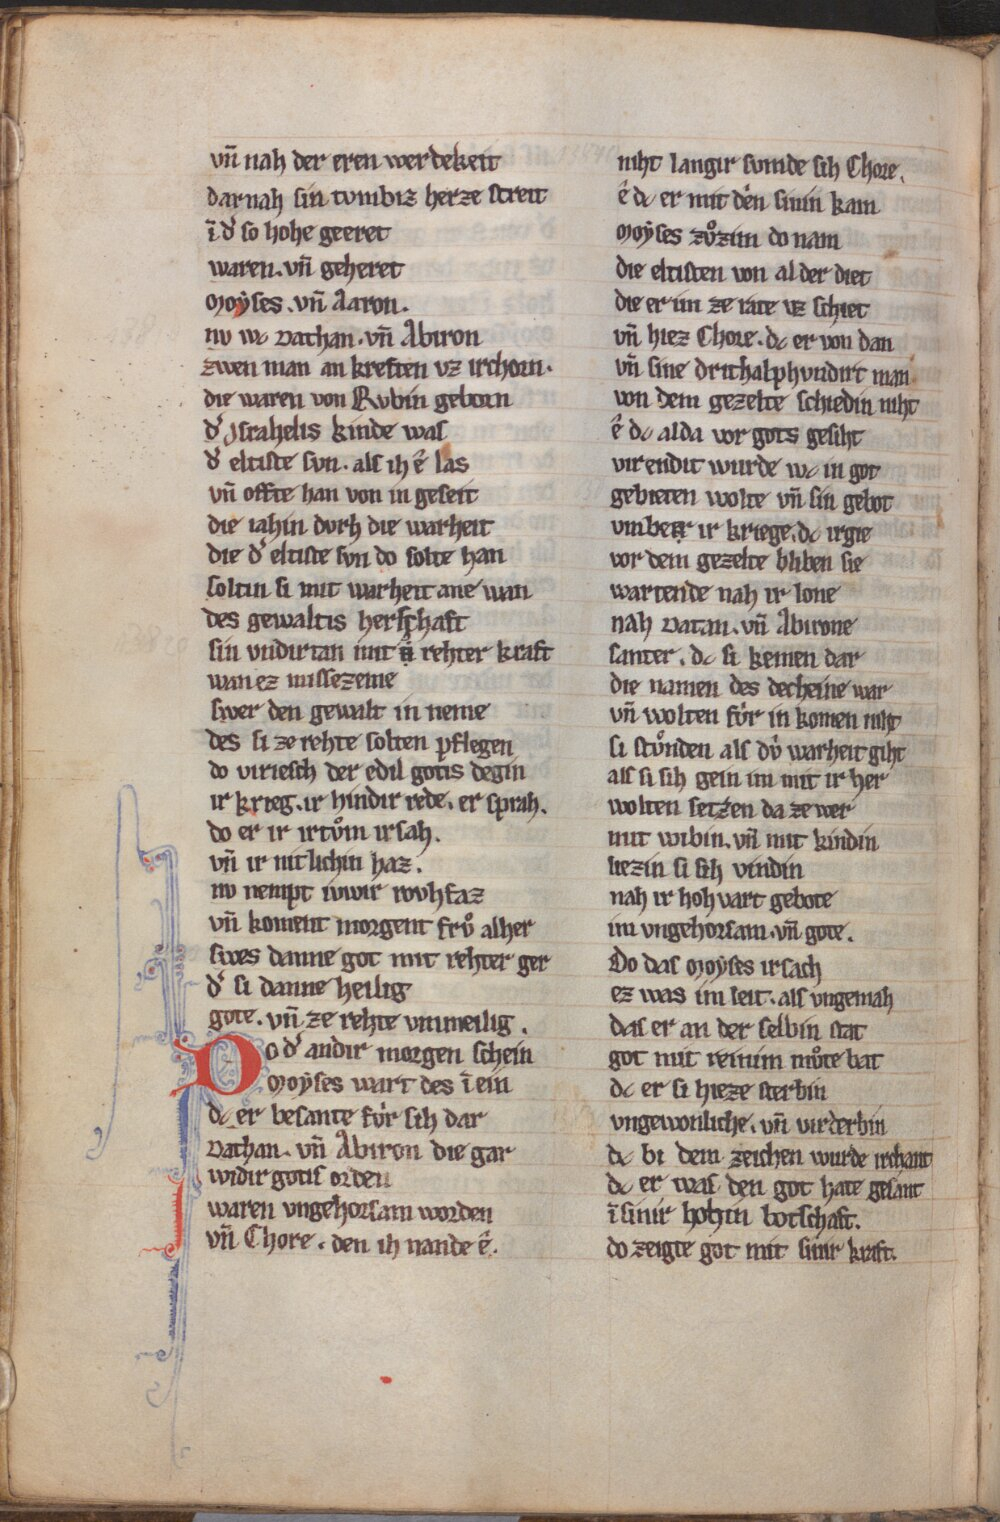 vn̄ nah der eren werdekeit
dar nah sin tumbiz herze streit
ī dˢ so hohe geeret
waren. vn̄ geheret
Moẏses. vn̄ Aaron.
nv wc Dathan. vn̄ Abiron
zwen man an kreften vz irchorn.
die waren von Rvbin geborn
dˢ Jsrahelis kinde was
dˢ eltiste svn. als ih ē las
vn̄ offte han von in geseit
die iahin dvrh die warheit
die dˢ eltiste svn do solte han
soltin si mit warheit ane wan
des gewaltis herschaft
sin vndirtan mit rehter kraft
wan ez missezeme
swer den gewalt in neme
des si ze rehte solten pflegen
do virīesch der edil gotis degin
ir krieg. ir hindir rede. er sprah.
do er ir irtům irsah.
vn̄ ir nitlichin haz.
nv nempt iuwir rovhfaz
vn̄ koment morgent frů alher
swes danne got mit rehter ger
dˢ si danne heilig
gote. vn̄ ze rehte vnmeilig.
Do dˢ andir morgen schein
Moẏses wart des ī ein
dc er besante fv́r sih dar
Dathan. vn̄ Abiron die gar
widir gotis orden
waren vngehorsam worden
vn̄ Chore. den ih nande ē.
niht langir sumde sih Chore.
ē dc er mit den sinin kam
Moẏses zůzim do nam
die eltisten von al der diet
die er im ze rate vz schiet
vn̄ hiez Chore. dc er von dan
vn̄ sine drithalphvndirt man
von dem gezelte schiedin niht
ē dc alda vor gots gesiht
virendit wurde wc in got
gebieten wolte vn̄ sin gebot
vmbe ir kriege. dc irgie
vor dem gezelte bliben sie
wartende nah ir lone
nah Datan. vn̄ Abirone
santer. dc si kemen dar
die namen des decheine war
vn̄ wolten fv́r in komen niht
si stůnden als dv́ warheit giht
als si sih gein im mit ir her
wolten setzen da ze wer
mit wibin. vn̄ mit kindin
liezin si sih vindin
nah ir hohvart gebote
im vngehorsam. vn̄ gote.
Do das Moẏses irsach
ez was im leit. als vngemah
das er an der selbin stat
got mit reinim můte bat
dc er si hieze sterbin
vngewonliche. vn̄ virderbin
dc bi dem zeichen wurde irchant
dc er was den got hate gesant
ī sinir hohin botschaft.
do zeigte got mit sinir kraft.